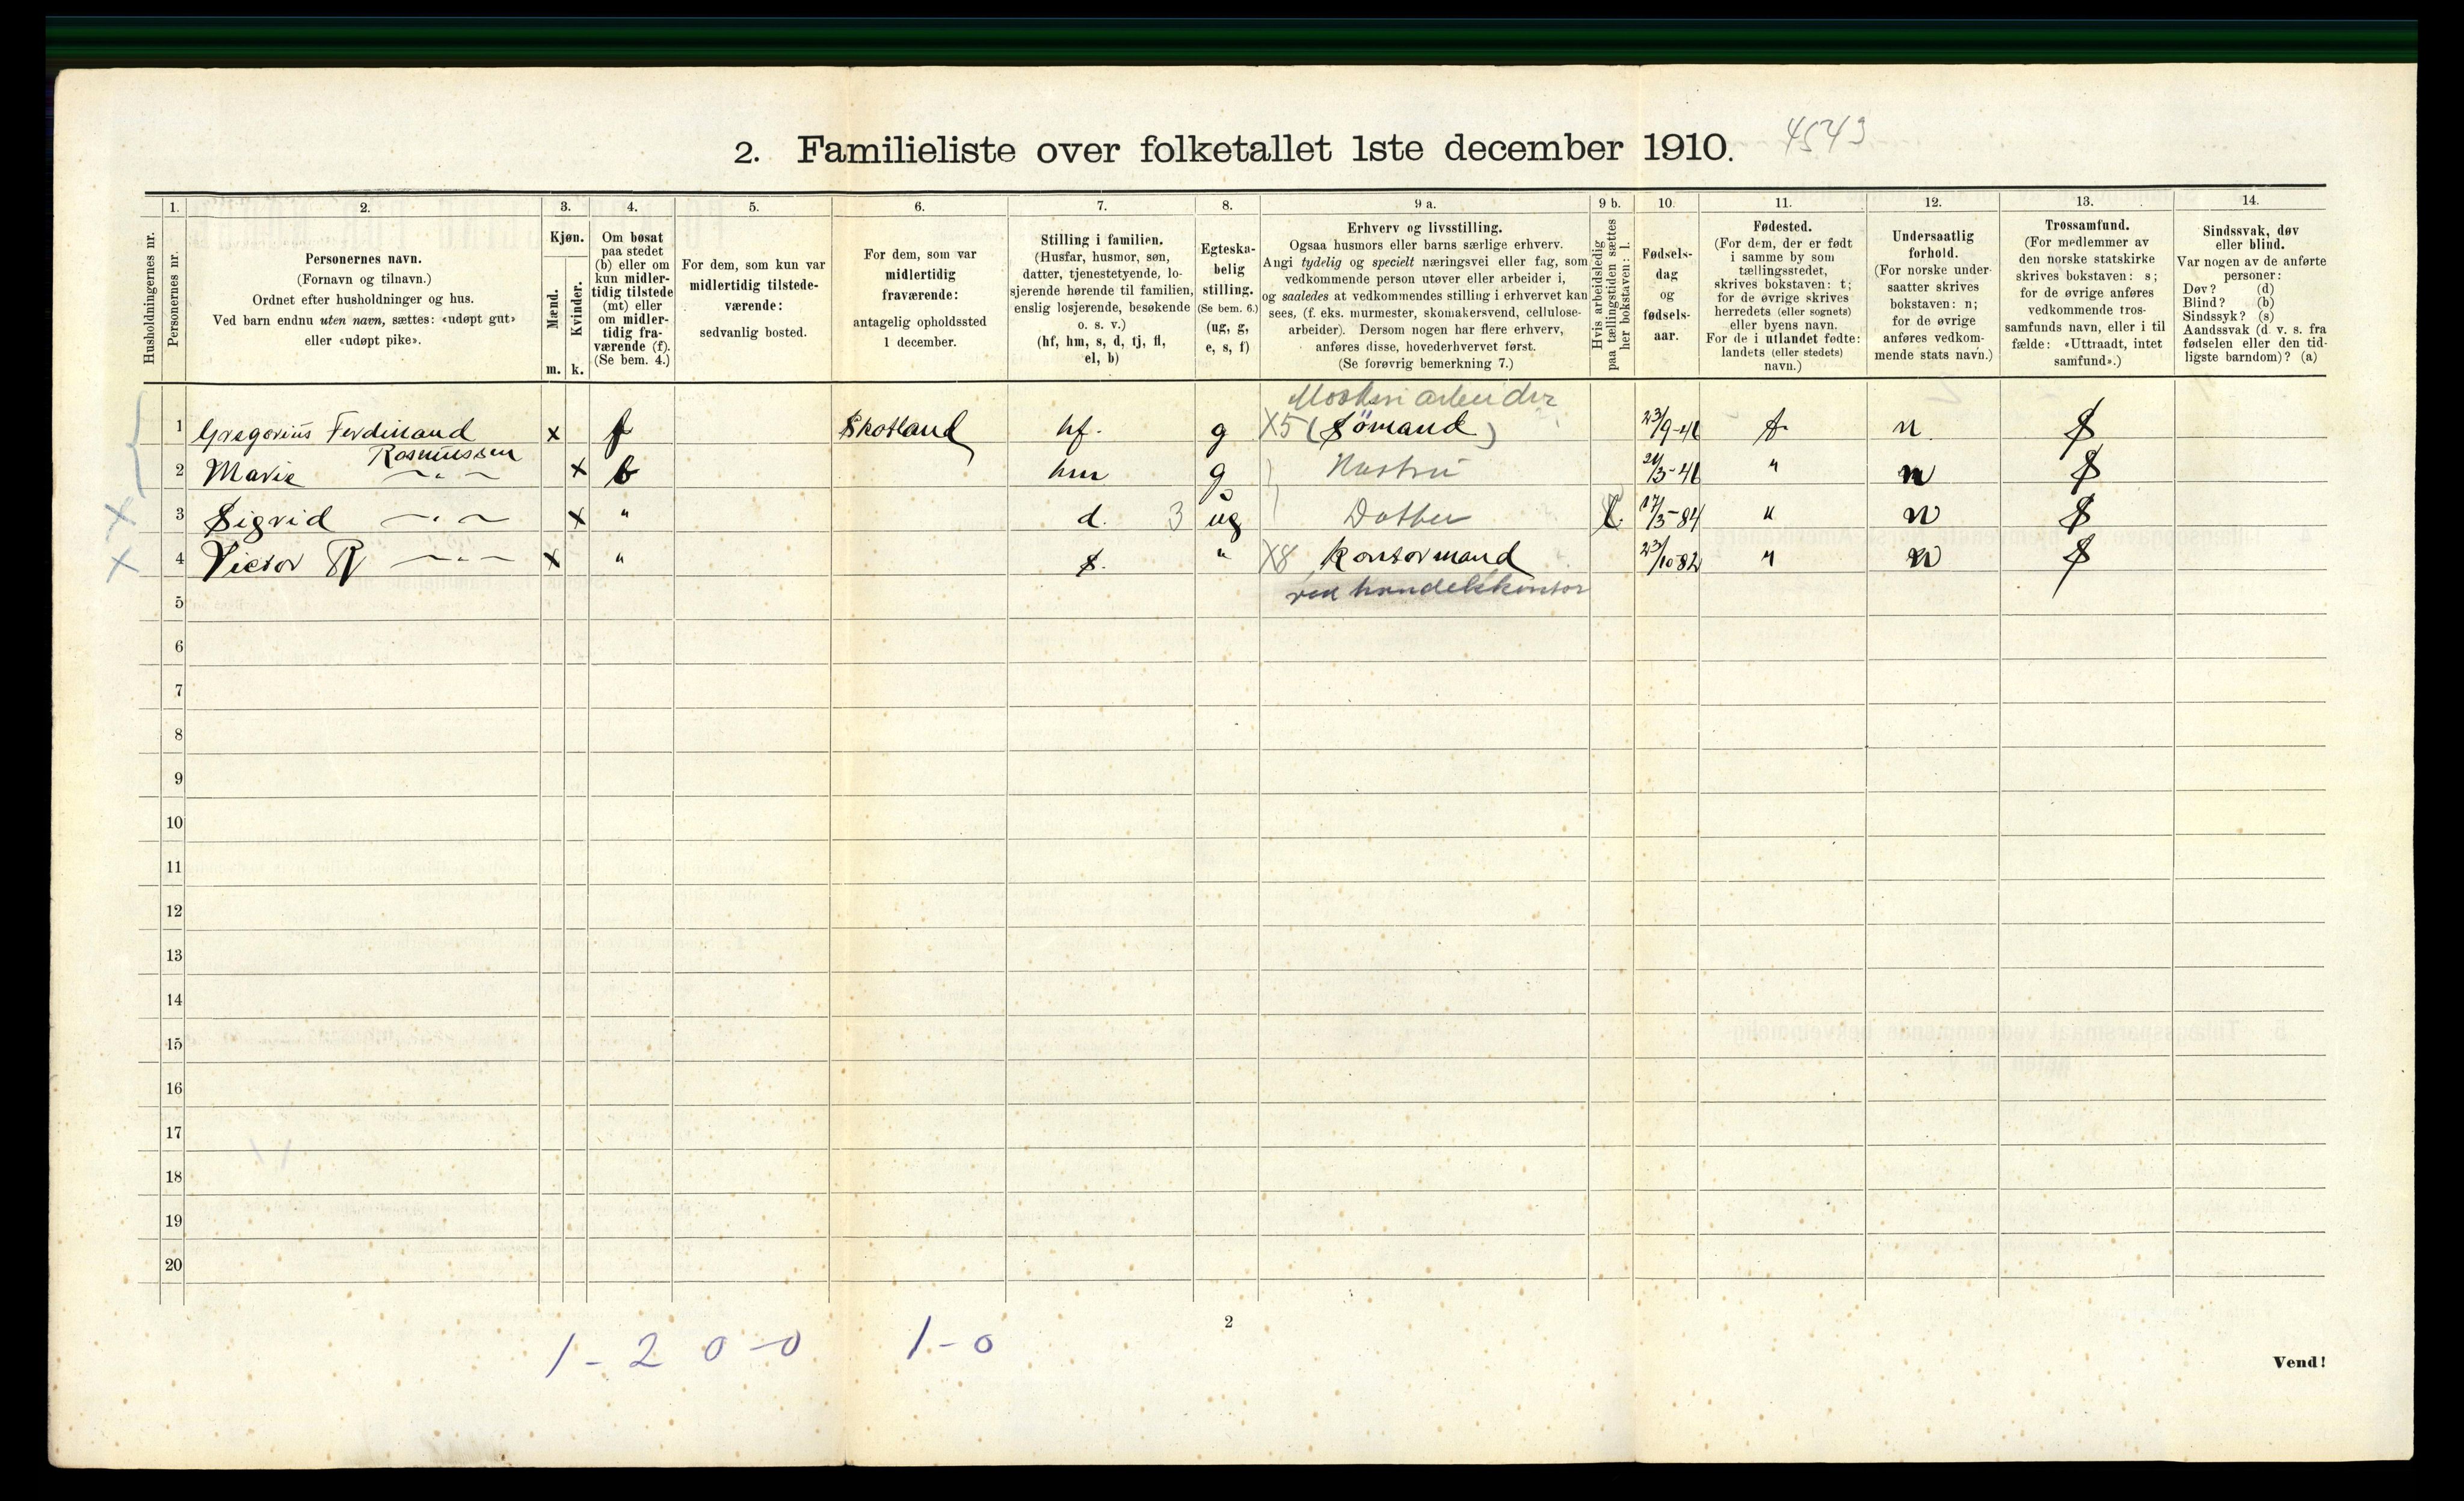 2. Familieliste over folketallet 1ste december 1910. 4543
1. 2. 3. 4. 5. 6. 7. 8. 9 a. 9 b. 10. 11. 12. 13. 14.
Husholdningernes nr.
Personernes nr.
Personernes navn.
(Fornavn og tilnavn.)
Ordnet efter husholdninger og hus.
Ved barn endnu uten navn, sættes: «udøpt gut»
eller «udøpt pike».
Kjøn.
Mænd.
Kvinder.
m. k.
Om bosat
paa stedet
(b) eller om
kun midler-
tidig tilstede
(mt) eller
om midler-
tidig fra-
værende (f).
(Se bem. 4.)
For dem, som kun var
midlertidig tilstede-
værende:
sedvanlig bosted.
For dem, som var
midlertidig
fraværende:
antagelig opholdssted
1 december.
Stilling i familien.
(Husfar, husmor, søn,
datter, tjenestetyende, lo-
sjerende hørende til familien,
enslig losjerende, besøkende
o. s. v.)
(hf, hm, s, d, tj, fl,
el, b)
Egteska-
belig
stilling.
(Se bem. 6.)
(ug, g,
e, s, f)
Erhverv og livsstilling.
Ogsaa husmors eller barns særlige erhverv.
Angi tydelig og specielt næringsvei eller fag, som
vedkommende person utøver eller arbeider i,
og saaledes at vedkommendes stilling i erhvervet kan
sees, (f. eks. murmester, skomakersvend, cellulose-
arbeider). Dersom nogen har flere erhverv,
anføres disse, hovederhvervet først.
(Se forøvrig bemerkning 7.)
Hvis arbeidsledig
paa tællingstiden sættes
her bokstaven: l.
Fødsels-
dag
og
fødsels-
aar.
Fødested.
(For dem, der er født
i samme by som
tællingsstedet,
skrives bokstaven: t;
for de øvrige skrives
herredets (eller sognets)
eller byens navn.
For de i utlandet fødte:
landets (eller stedets)
navn.)
Undersaatlig
forhold.
(For norske under-
saatter skrives
bokstaven: n;
for de øvrige
anføres vedkom-
mende stats navn.)
Trossamfund.
(For medlemmer av
den norske statskirke
skrives bokstaven: s;
for de øvrige anføres
vedkommende tros-
samfunds navn, eller i til
fælde: «Uttraadt, intet
samfund».)
Sindssvak, døv
eller blind.
Var nogen av de anførte
personer:
Døv? (d)
Blind? (b)
Sindssyk? (s)
Aandssvak (d. v. s. fra
fødselen eller den tid-
ligste barndom)? (a)
arbeider
1 Gregorius Ferdinand x f Skotland hf. g X5 (Sömand) 23/9-46 t. n. S
Rasmussen
2 Marie —〃— x b hm g Hustru 21/3-46 " n S
3 Sigrid —〃— x " d. 3 ug Datter 17/3-84 " n S
4 Victor R —〃— x " s. " X8 Kontormand 23/10-82 " n S
5 ved handelskontor
6
7
8
9
10
11
12
13
14
15
16
17
18
19
20
1-2 0-0 1-0
2
Vend!